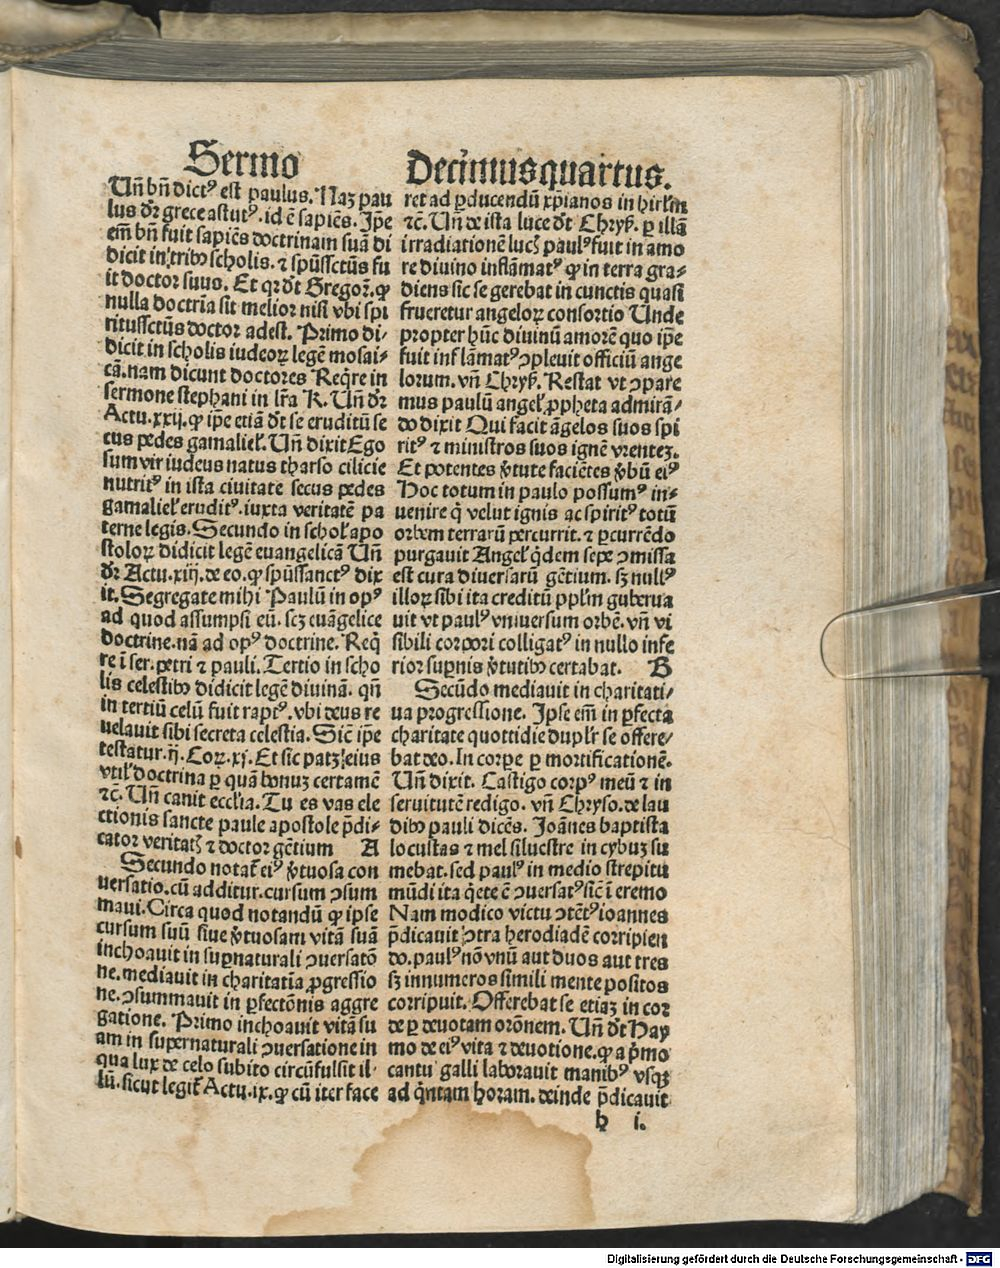 Sermo
Uñ bñ dictꝰ est paulus. Naꝫ pau
lus dr̃ grece astutꝰ. id ē sapiēs. Ip̃e
em̃ bñ fuit sapiēs doctrinam suā di
dicit in tribꝰ scholis. ⁊ spũssctũs fu
it doctor suus. Et qꝛ dt̃ Gregoꝝ. ꝙ
nulla doctrĩa sit melior nisi vbi spi
ritussctũs doctor adest. Primo di⸗
dicit in scholis iudeoꝝ legē mosai⸗
cā. nam dicunt doctores Req̃re in
sermone stephani in lr̃a K. Uñ dr̃
Actu. xxij. ꝙ ip̃e etiā dt̃ se eruditũ se
cus pedes gamalieł. Uñ dixit Ego
sum vir iudeus natus tharso cilicie
nutritꝰ in ista ciuitate secus pedes
gamalieł eruditꝰ. iuxta veritatē pa
terne legis. Secundo in schoł apo
stoloꝝ didicit legē euangelicā Uñ
dr̃ Actu. xiij. de eo. ꝙ spũssanctꝰ dix
it. Segregate mihi Paulũ in opꝰ
ad quod assumpsi eũ. scꝫ euāgelice
doctrine. nā ad opꝰ doctrine. Req̃
re ī ser. petri ⁊ pauli. Tertio in scho
lis celestibꝰ didicit legē diuinā. qñ
in tertiũ celũ fuit raptꝰ. vbi deus re
uelauit sibi secreta celestia. Sic̃ ip̃e
testatur. ij. Coꝝ. xj. Et sic patꝫ eius
vtił doctrina ꝑ quā bonuꝫ certamē
⁊c̃. Uñ canit eccl̃ia. Tu es vas ele
ctionis sancte paule apostole p̃di⸗
cator veritatꝭ ⁊ doctor gētium A
Secundo notat̃ eiꝰ v̓tuosa con
uersatio. cũ additur. cursum ꝯsum
maui. Circa quod notandũ ꝙ ipse
cursum suũ siue v̓tuosam vitā suā
inchoauit in suꝑnaturali ꝯuersatō
ne. mediauit in charitatĩa ꝓgressio
ne. ꝯsummauit in ꝑfectōnis aggre
gatione. Primo inchoauit vitā su
am in supernaturali ꝯuersatione in
qua lux de celo subito circũfulsit il⸗
lũ. sicut legit̃ Actu. ix. ꝙ cũ iter face
Decimusquartus.
ret ad ꝑducendũ xp̃ianos in hirl̃m
⁊c̃. Uñ de ista luce dt̃ Chryꝭ. ꝑ illā
irradiationē lucꝭ paulꝰ fuit in amo
re diuino inflāmatꝰ ꝙ in terra gra⸗
diens sic se gerebat in cunctis quasi
frueretur angeloꝝ consortio Unde
propter hũc diuinũ amorē quo ip̃e
fuit inflāmatꝰ ꝯpleuit officiũ ange
lorum. vñ Chryꝭ. Restat vt ꝯpare
mus paulũ angeł ꝓpheta admirā⸗
do dixit Qui facit āgelos suos spi
ritꝰ ⁊ ministros suos ignē vrenteꝫ.
Et potentes v̓tute faciētes v̓bũ eiꝰ
Hoc totum in paulo possumꝰ in⸗
uenire q̇ velut ignis ac spiritꝰ totũ
orbem terrarũ percurrit. ⁊ ꝑcurrēdo
purgauit Angeł q̇dem sepe ꝯmissa
est cura diuersarũ gētium. sꝫ nullꝰ
illoꝝ sibi ita creditũ ppl̃m guberna
uit vt paulꝰ vniuersum orbē. vñ vi
sibili corpori colligatꝰ in nullo infe
rior suꝑnis v̓tutibꝰ certabat. B
Secũdo mediauit in charitati⸗
ua progressione. Ipse em̃ in ꝑfecta
charitate quottidie duplr̃ se offere⸗
bat deo. In corpe ꝑ mortificationē.
Uñ dixit. Castigo corpꝰ meũ ⁊ in
seruitutē redigo. vñ Chryso. de lau
dibꝰ pauli dicēs. Joānes baptista
locustas ⁊ mel siluestre in cybuꝫ su
mebat. sed paulꝰ in medio strepitu
mũdi ita q̇ete ē ꝯuersatꝰ sic̃ ī eremo
Nam modico victu ꝯtētꝰ ioannes
p̃dicauit ꝯtra herodiadē corripien
do. paulꝰ nō vnũ aut duos aut tres
sꝫ innumeros simili mente positos
corripuit. Offerebat se etiaꝫ in cor
de ꝑ deuotam orōnem. Uñ dt̃ Hay
mo de eiꝰ vita ⁊ deuotione. ꝙ a p̓mo
cantu galli laborauit manibꝰ vsqꝫ
ad q̇ntam horam. deinde p̃dicauit
h i.
Digitalisierung gefördert durch die Deutsche Forschungsgemeinschaft - DFG